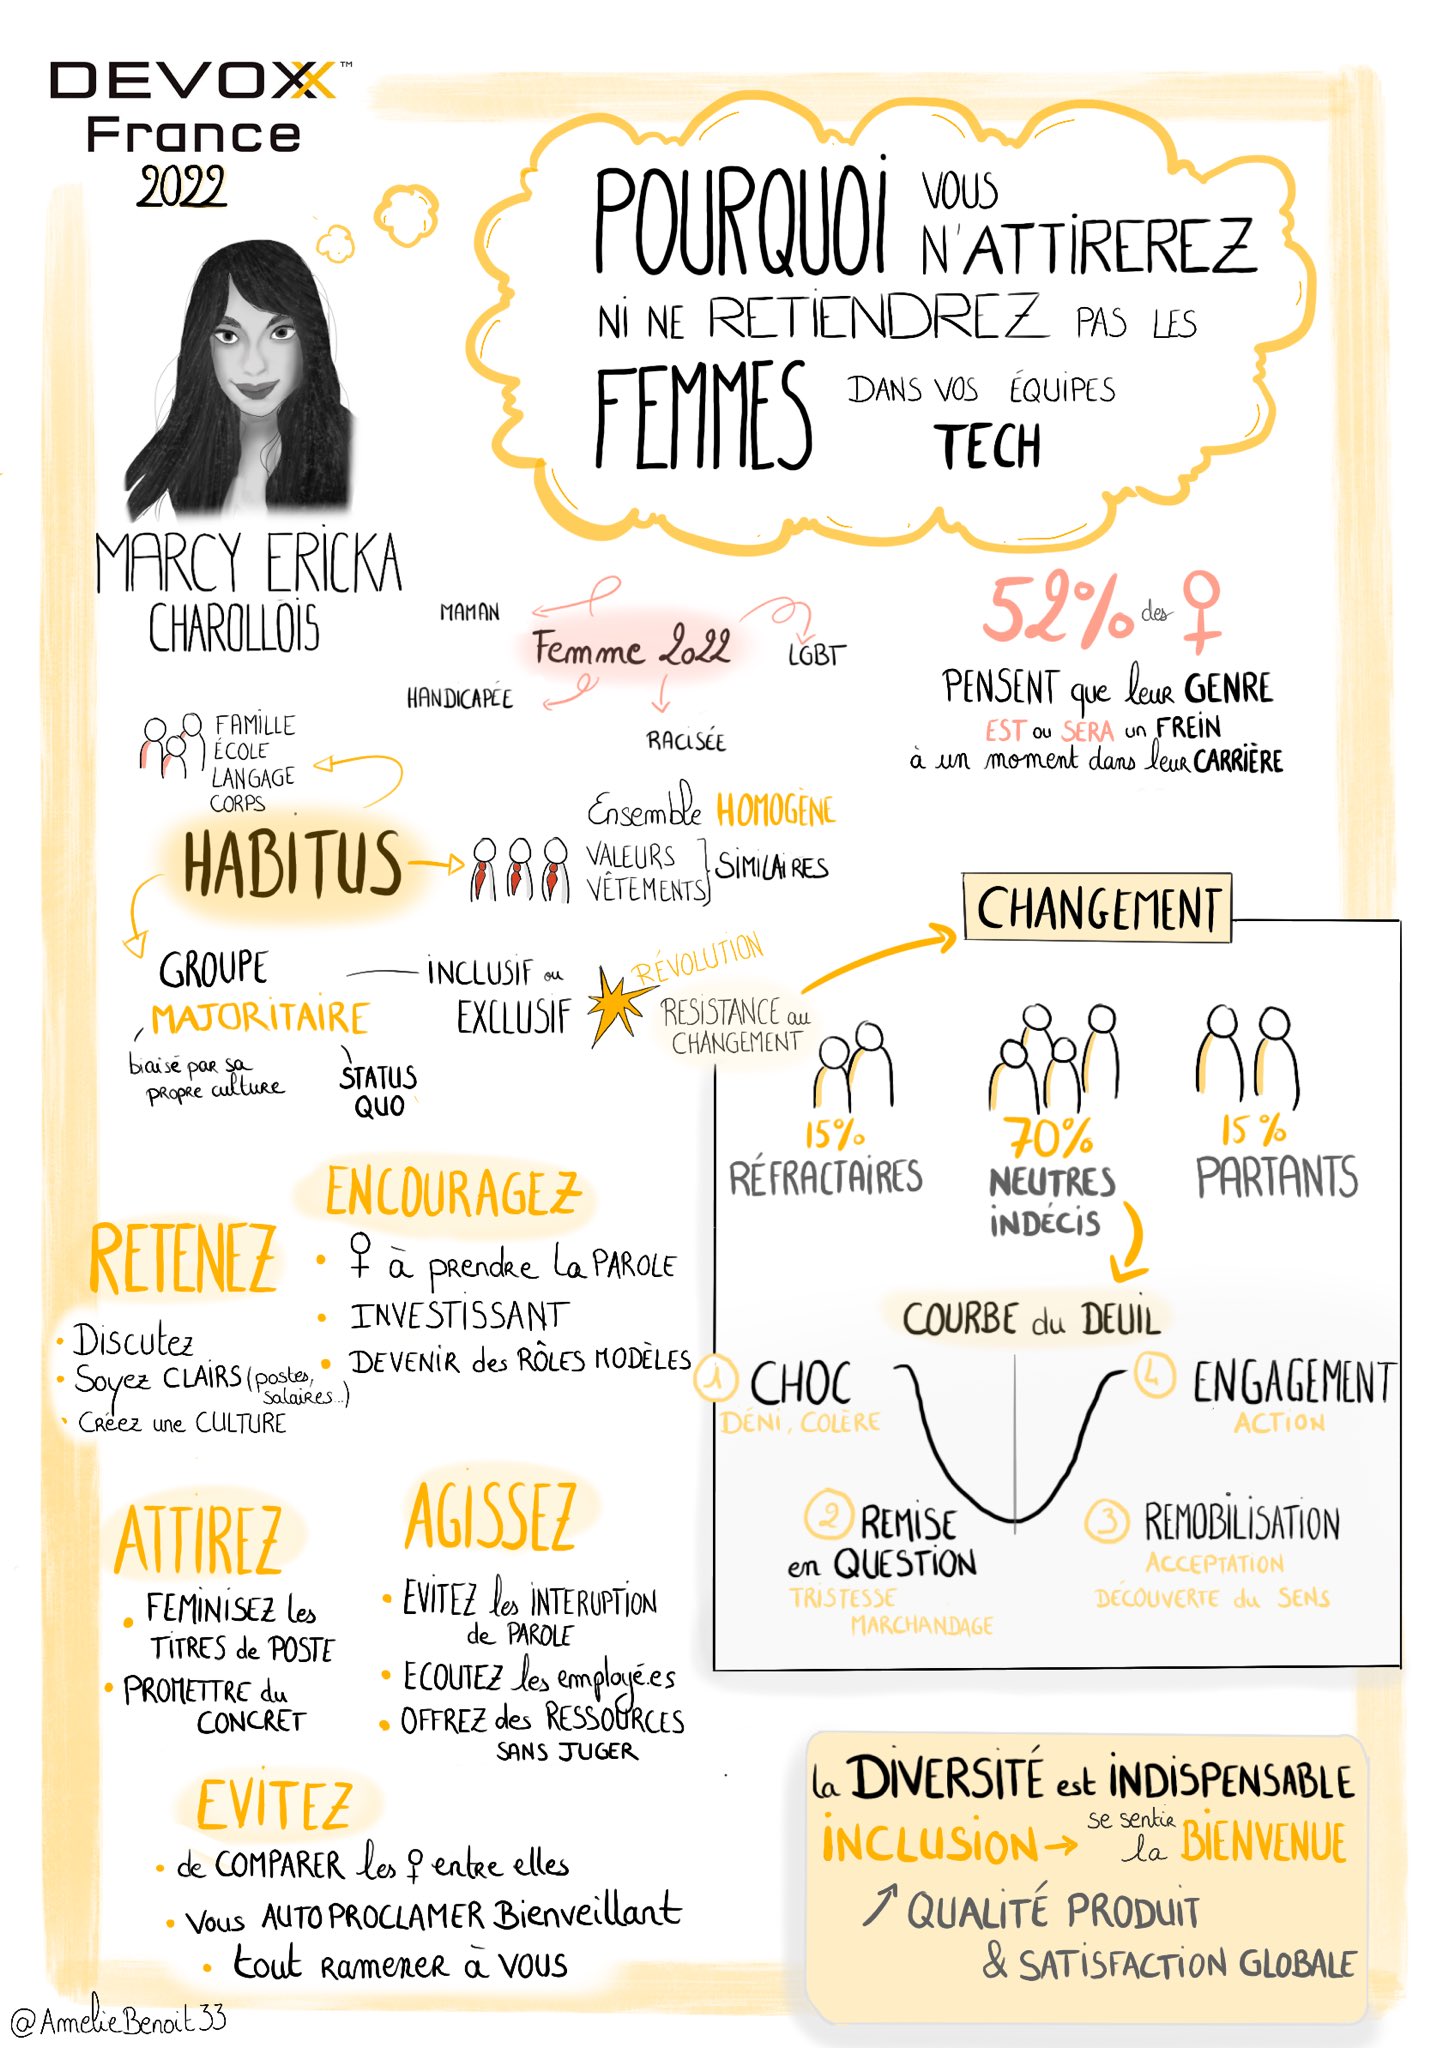 DEVOXX™
France
2022
POURQUOI VOUS
N'ATTIREREZ
NI NE RETIENDREZ PAS LES
FEMMES DANS VOS ÉQUIPES
TECH
MARCY ERICKA
CHAROLLOIS
MAMAN
Femme 2022
LGBT
HANDICAPÉE
RACISÉE
52% des ♀
PENSENT que leur GENRE
EST ou SERA un FREIN
à un moment dans leur CARRIÈRE
FAMILLE
ÉCOLE
LANGAGE
CORPS
HABITUS
Ensemble HOMOGÈNE
VALEURS
VÊTEMENTS
SIMILAIRES
GROUPE
MAJORITAIRE
biaisé par sa
propre culture
STATUS
QUO
INCLUSIF ou
EXCLUSIF
RÉVOLUTION
RESISTANCE au
CHANGEMENT
CHANGEMENT
15%
RÉFRACTAIRES
70%
NEUTRES
INDÉCIS
15%
PARTANTS
COURBE du DEUIL
1 CHOC
DÉNI, COLÈRE
2 REMISE
en QUESTION
TRISTESSE
MARCHANDAGE
3 REMOBILISATION
ACCEPTATION
DÉCOUVERTE du SENS
4 ENGAGEMENT
ACTION
ENCOURAGEZ
• ♀ à prendre la PAROLE
• INVESTISSANT
• DEVENIR des RÔLES MODÈLES
RETENEZ
• Discutez
• Soyez CLAIRS (postes,
salaires...)
• Créez une CULTURE
ATTIREZ
• FEMINISEZ les
TITRES de POSTE
• PROMETTRE du
CONCRET
AGISSEZ
• EVITEZ les INTERUPTION
de PAROLE
• ECOUTEZ les employé.es
• OFFREZ des RESSOURCES
SANS JUGER
EVITEZ
• de COMPARER les ♀ entre elles
• Vous AUTOPROCLAMER Bienveillant
• tout ramener à vous
la DIVERSITÉ est INDISPENSABLE
INCLUSION → se sentir
la BIENVENUE
↗ QUALITÉ PRODUIT
& SATISFACTION GLOBALE
@AmelieBenoit33